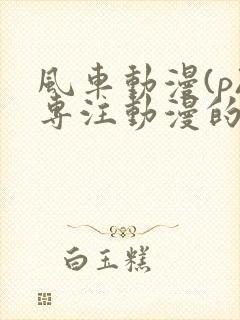 風車動漫(p
專注動漫的
白玉糕